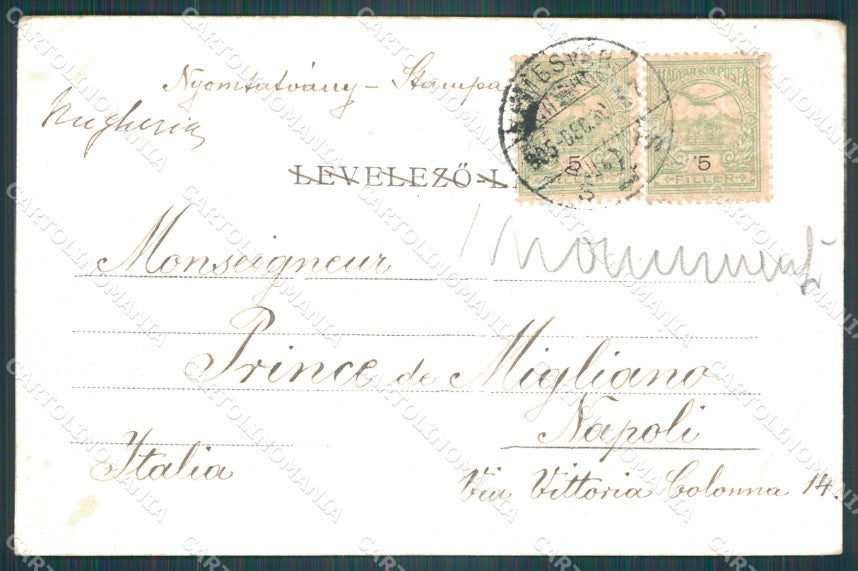 Nyomtatvány – Stampa
Ungheria
LEVELEZŐ-L
MAGYAR KIR. POSTA
5 5
FILLÉR
Monseigneur
Monument
Prince de Migliano
Napoli
Italia
Via Vittoria Colonna 14.
CARTOLINOMANIA